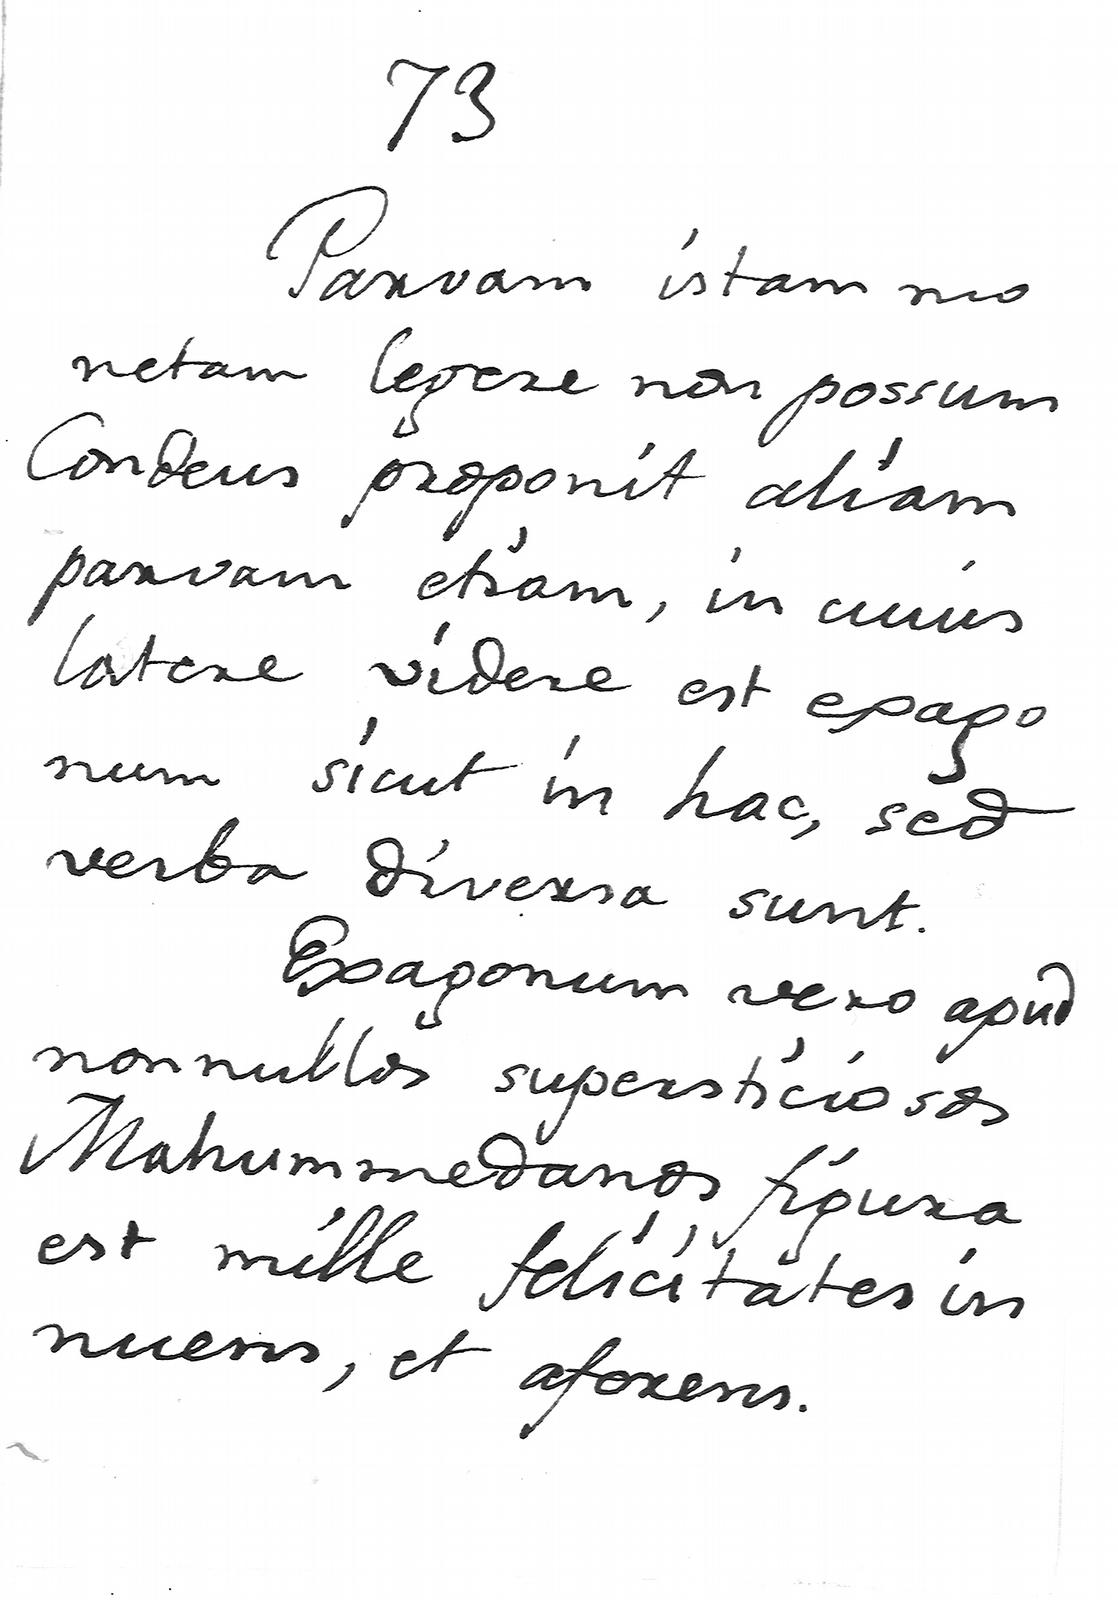 73
Parvam istam mo
netam legere non possum
Condeus proponit aliam
parvam etiam, in cuius
latere videre est exago
num sicut in hac, sed
verba diversa sunt.
Exagonum vero apud
nonnullos supersticiosos
Mahummedanos figura
est mille felicitates in
nuens, et aforens.